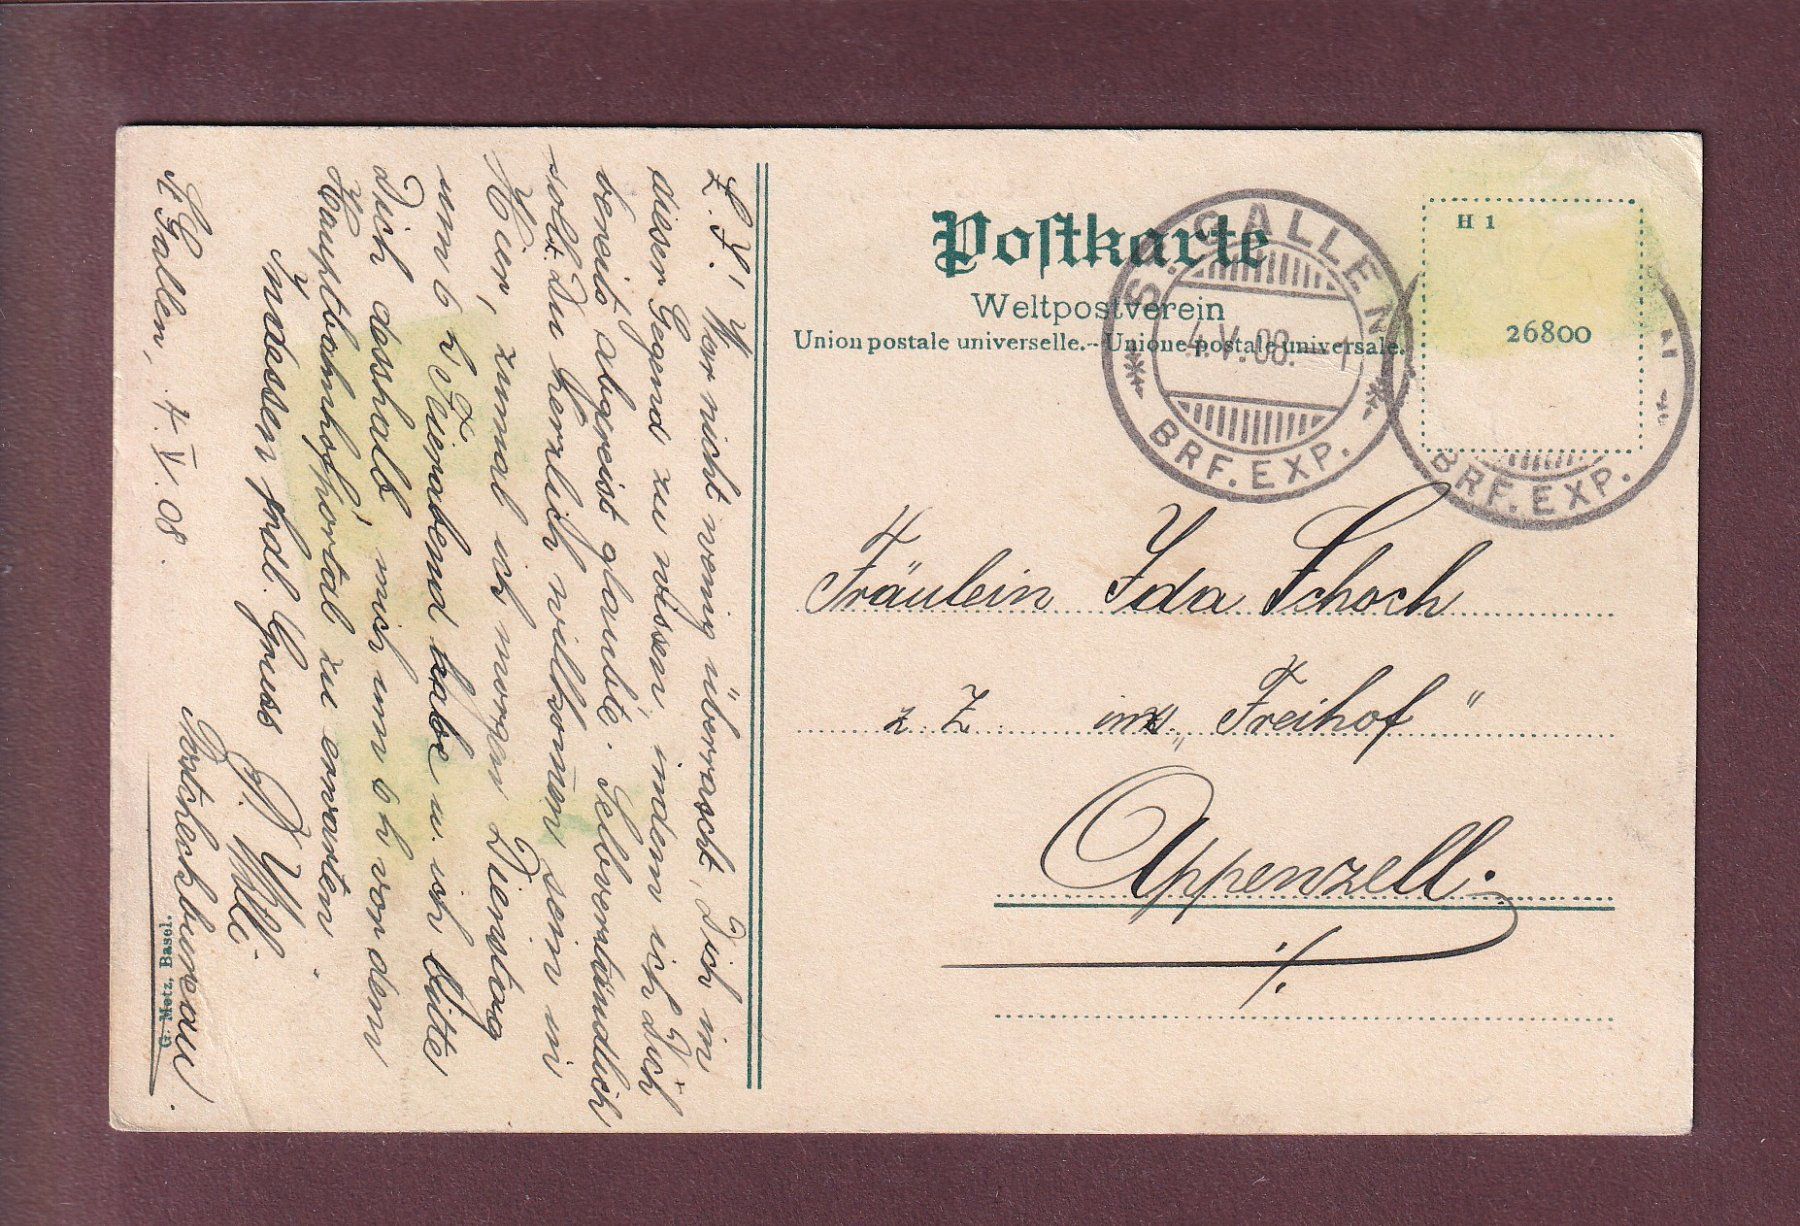 Postkarte
Weltpostverein
Union postale universelle.-- Unione postale universale.
H 1
26800
ST. GALLEN
4.V.08.–1
BRF. EXP.
N
BRF. EXP.
Fräulein Ida Schoch
z. Z. ins „Freihof"
Appenzell.
./.
L. F.! War nicht wenig überrascht, Dich in
dieser Gegend zu wissen, indem ich Dich
bereits abgereist glaubte. Selbverständlich
sollst Du herzlich willkomen sein in
Hier, zumal ich morgen Dienstag
um 6 h Feierabend habe u. ich bitte
Dich deshalb, mich um 6 h vor dem
Hauptbahnhofportal zu erwarten.
Indessen frdl. Gruss
Willi
St. Gallen, 4. V. 08.
Postcheckbureau.
G. Metz, Basel.